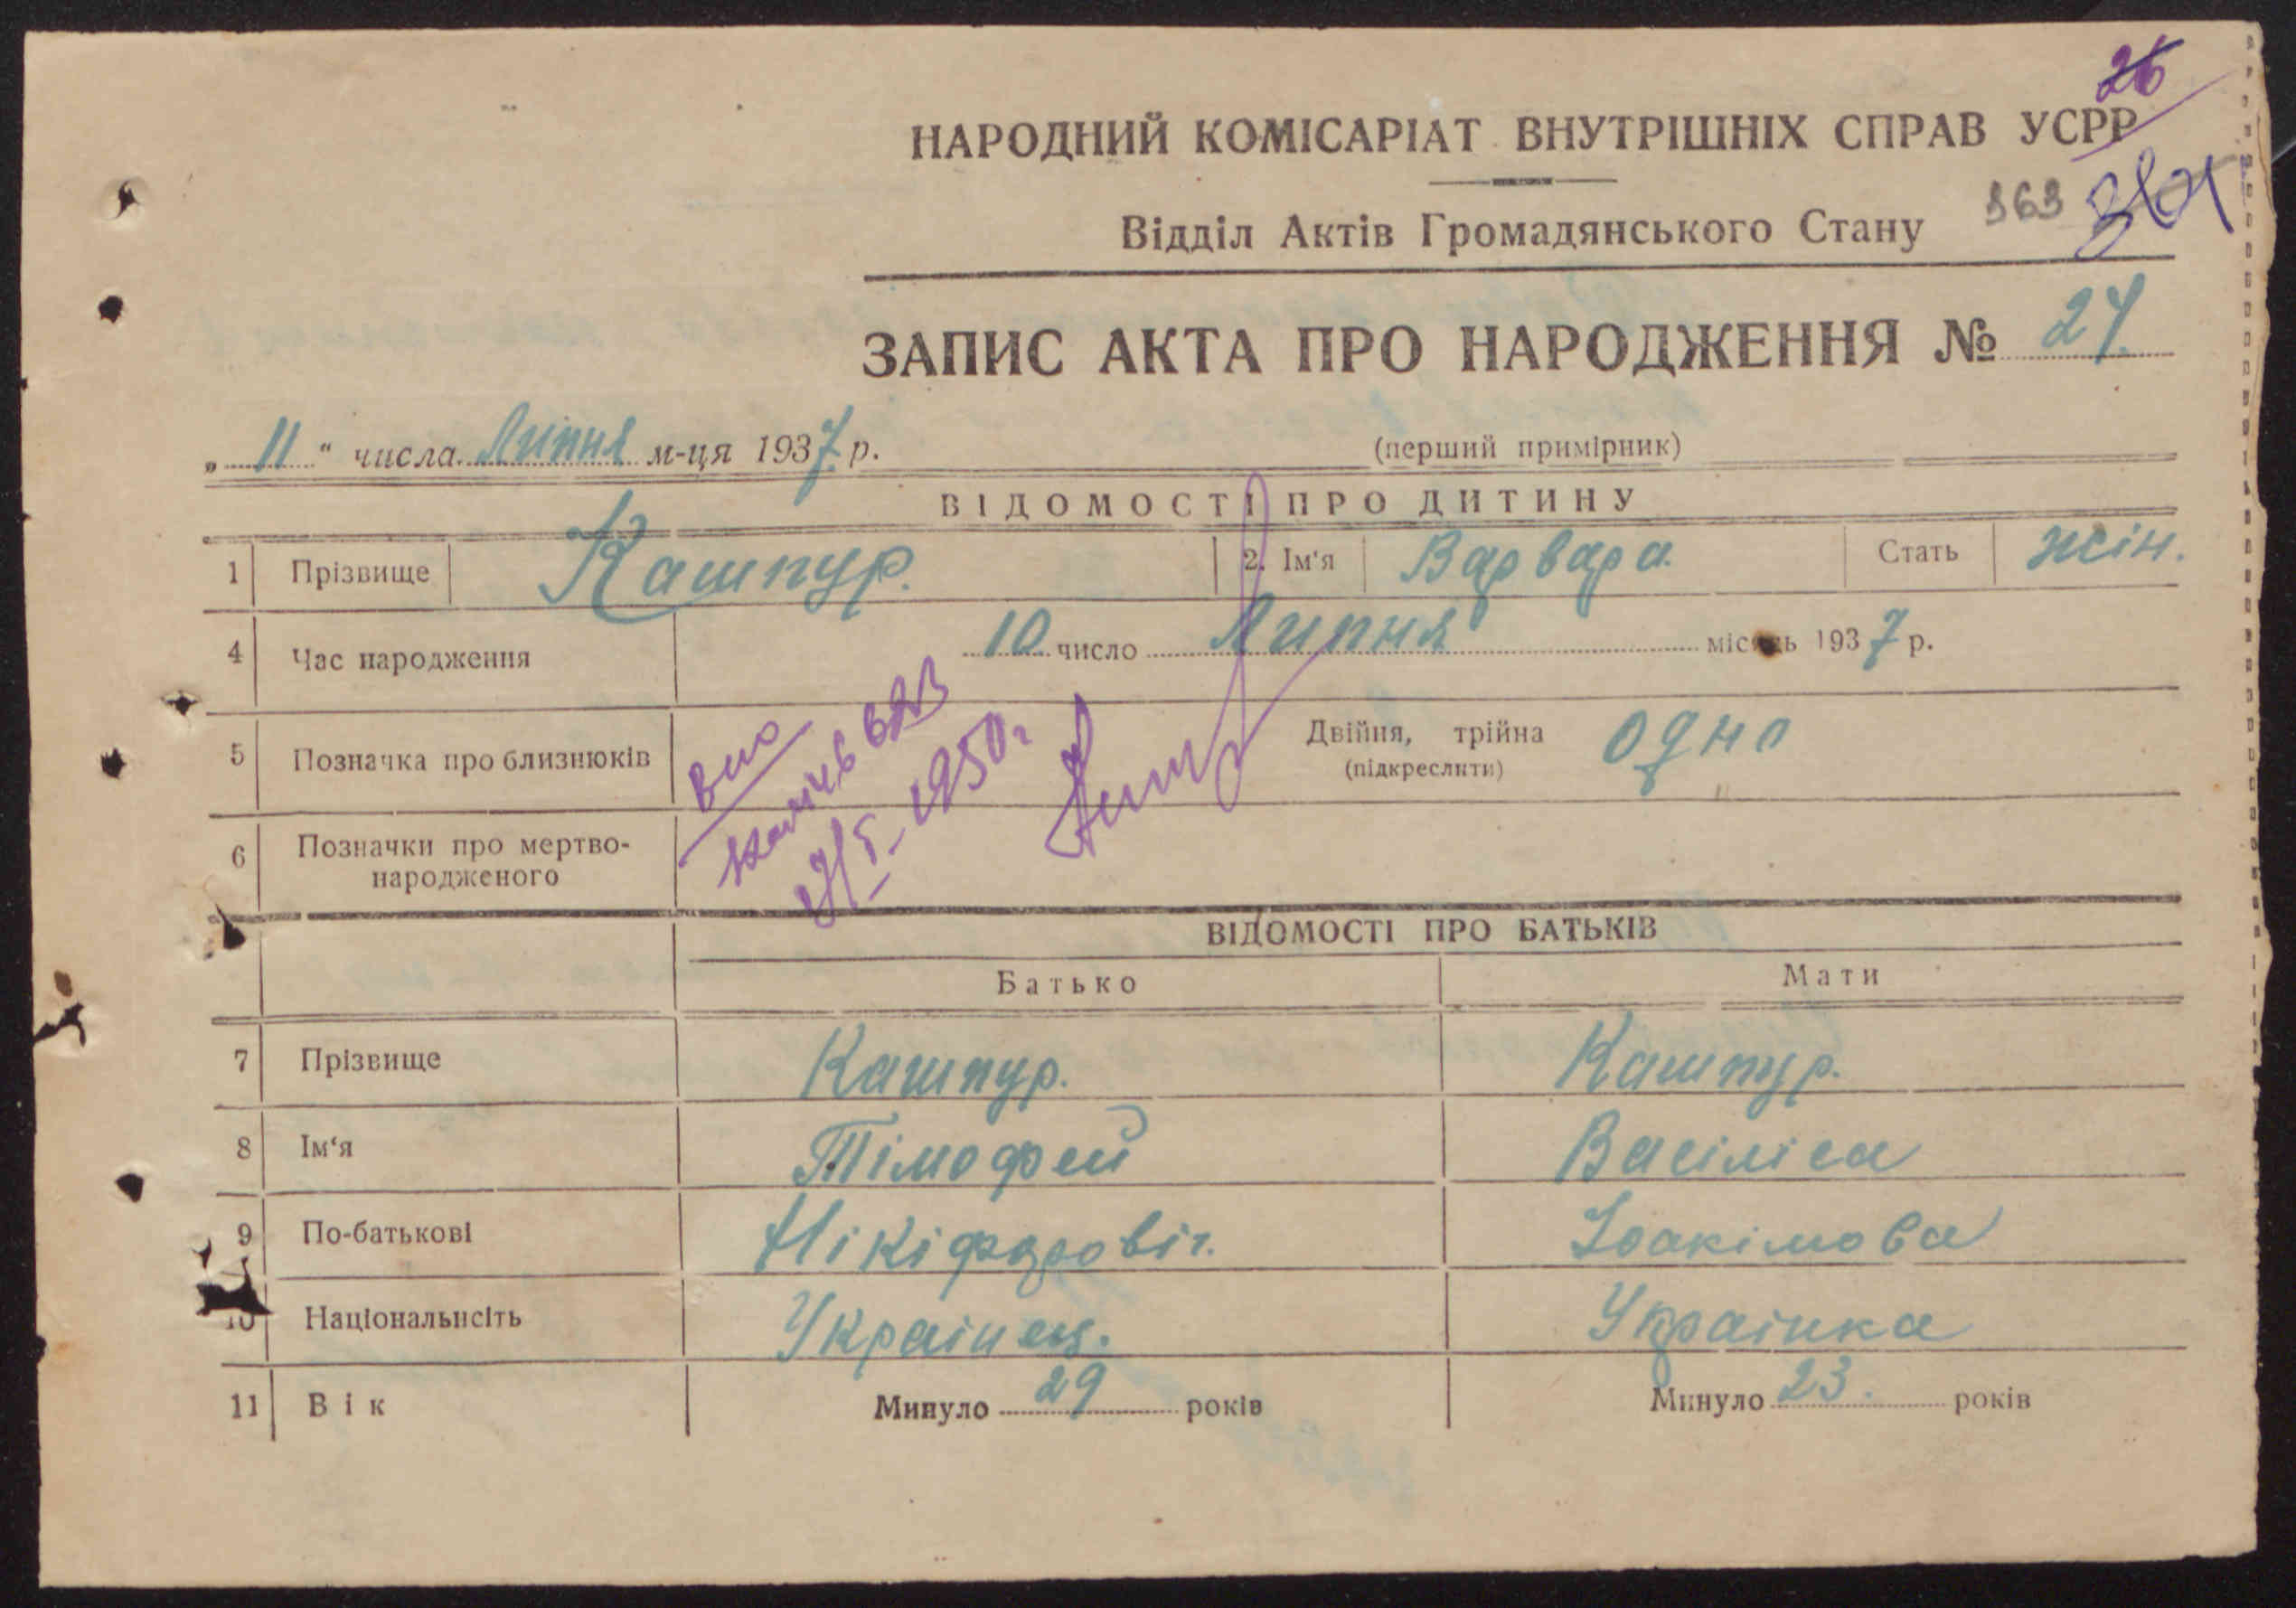 26
НАРОДНИЙ КОМІСАРІАТ ВНУТРІШНІХ СПРАВ УСРР
Відділ Актів Громадянського Стану 363
ЗАПИС АКТА ПРО НАРОДЖЕННЯ № 24.
„ 11 “ числа Липня м-ця 1937 р. (перший примірник)
ВІДОМОСТІ ПРО ДИТИНУ
1 Прізвище Кашпур. 2. Ім'я Варвара. Стать жін.
4 Час народження 10 число Липня місяць 1937 р.
5 Позначка про близнюків Двійня, трійна одно
(підкреслити)
1950 г
6 Позначки про мертво-
народженого
ВІДОМОСТІ ПРО БАТЬКІВ
Батько Мати
7 Прізвище Кашпур. Кашпур.
8 Ім'я Тімофей Васіліса
9 По-батькові Нікіфоровіч. Іоакімова
10 Національнсіть Українец. Українка
11 Вік Минуло 29 років Минуло 23. років